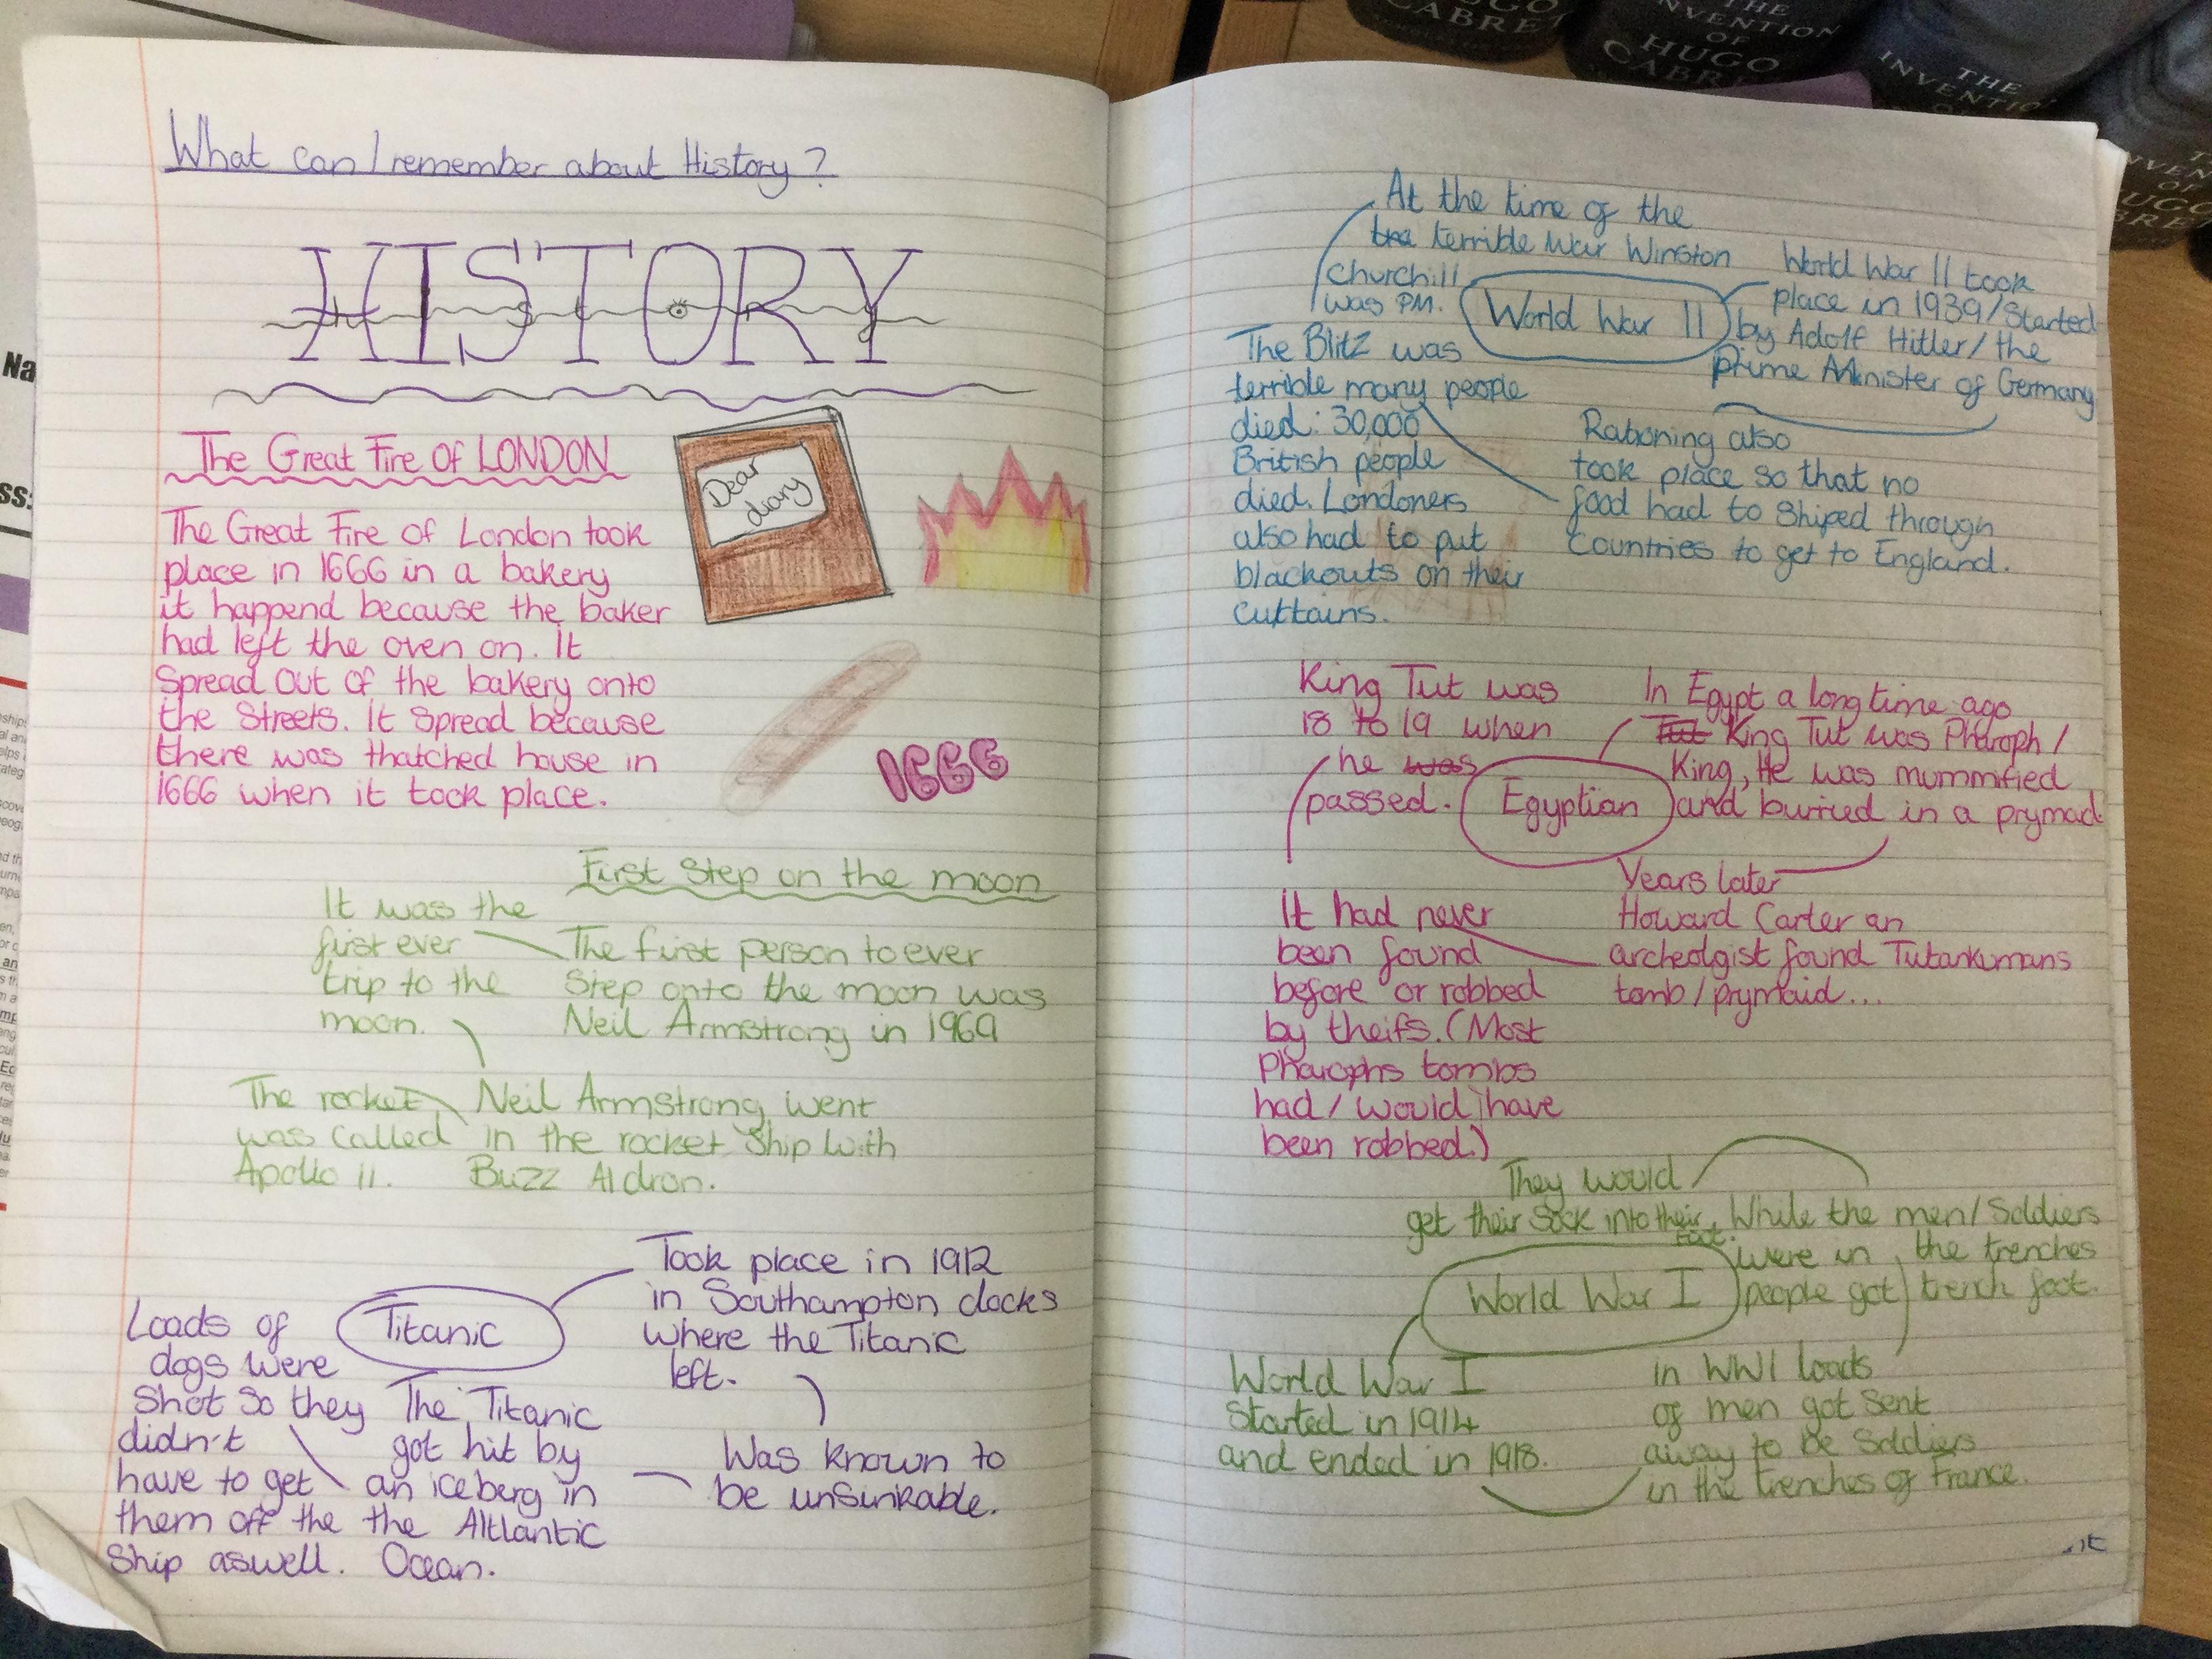 What can I remember about History?
HISTORY
History
The Great Fire Of LONDON
Dear
diary
The Great Fire of London took
place in 1666 in a bakery
it happend because the baker
had left the oven on. It
Spread out of the bakery onto
the Streets. It Spread because
there was thatched house in
1666 when it took place.
1666
First Step on the moon
It was the
first ever
trip to the
moon.
The first person to ever
Step onto the moon was
Neil Armstrong in 1969
The rocket
was called
Apollo 11.
Neil Armstrong went
in the rocket Ship with
Buzz Aldron.
Titanic
Took place in 1912
in Southampton docks
where the Titanic
left.
Was known to
be unsinkable.
The Titanic
got hit by
an iceberg in
the Altlantic
Ocean.
Loads of
dogs were
Shot So they
didn't
have to get
them off the
Ship aswell.
At the time of the
the terrible war Winston
Churchill
was PM.
World War II
World War II took
place in 1939/Started
by Adolf Hitler/the
Prime Minister of Germany
Rationing also
took place so that no
food had to Shiped through
Countries to get to England.
The Blitz was
terrible many people
died: 30,000
British people
died. Londoners
also had to put
blackouts on their
curtains.
King Tut was
18 to 19 when
he was
passed.
Egyptian
In Egypt a long time ago
Tut King Tut was Pharoph/
King, He was mummified
and burried in a prymad.
Years later
Howard Carter an
archeolgist found Tutankumans
tomb/prymaid...
It had never
been found
before or robbed
by theifs. (Most
Pharophs tombs
had/would have
been robbed.)
They would
get their Sock into their
foot.
World War I
While the men/Soldiers
were in the trenches
people got trench foot.
World War I
Started in 1914
and ended in 1918.
in WWI loads
of men got Sent
away to be Soldiers
in the trenches of France.
Na
ss:
THE
INVENTION
OF
HUGO
CABRE
THE
INVENTIO